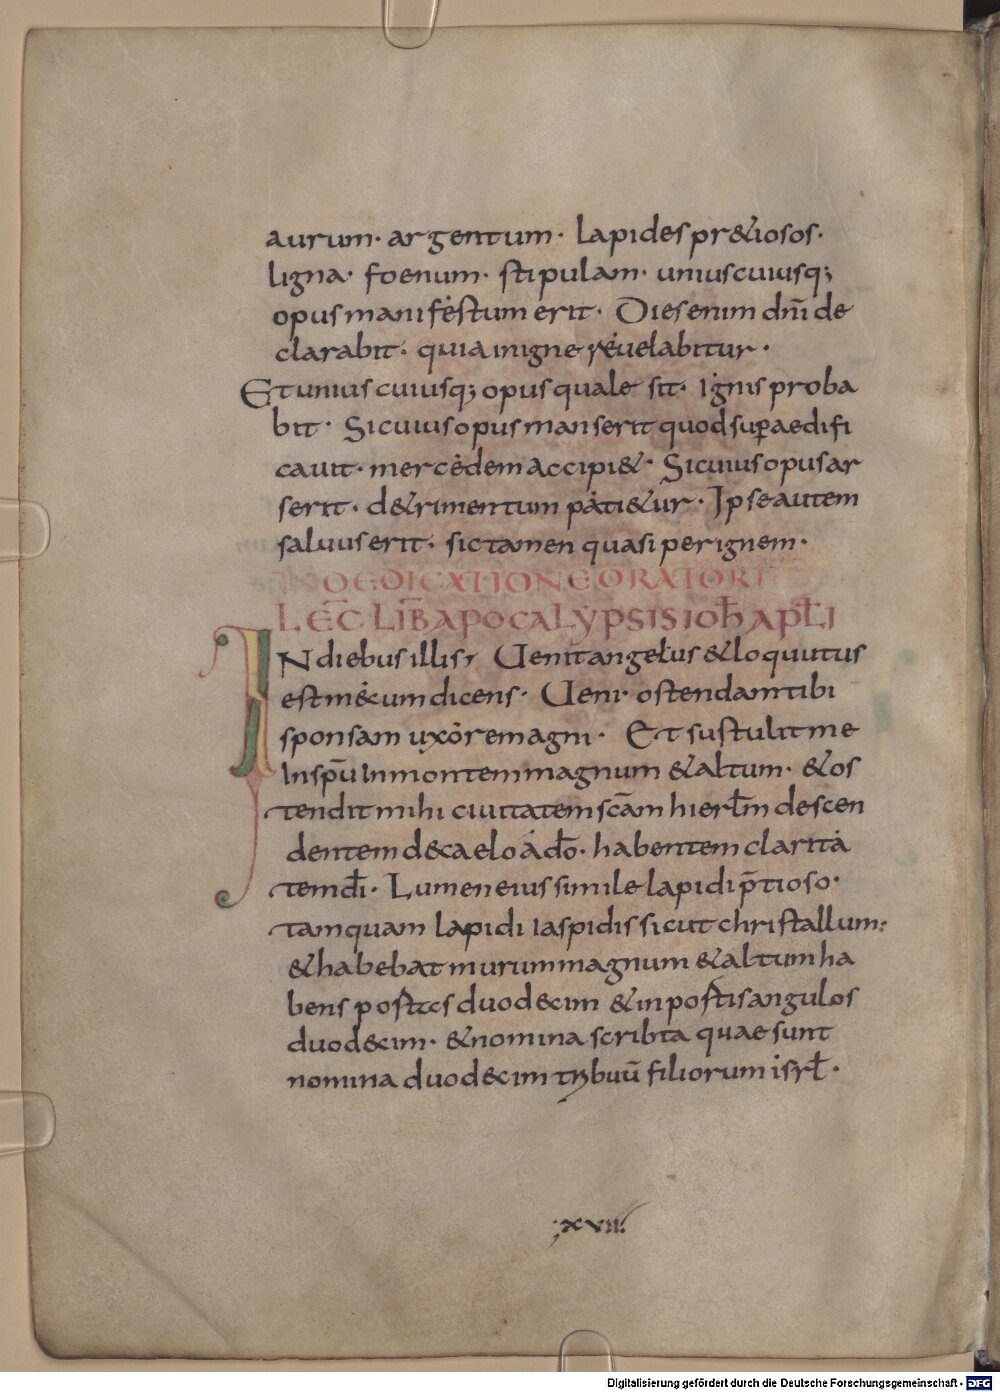 aurum· argentum· lapides pr&iosos·
ligna· foenum· stipulam· uniuscuiusq;
opus manifestum erit· Dies enim dn̄i de
clarabit· quia in igne reuelabitur·
Et unius cuiusq; opus quale sit· Ignis proba
bit· Si cuius opus manserit quod suꝑaedifi
cauit· mercedem accipi&· Si cuius opus ar
serit· d&rimentum pati&ur· Ipse autem
saluus erit· sic tamen quasi per ignem·
IN DEDICATIONE ORATORI
LEC̄ LIB̄ APOCALYPSIS IOH̄ APŁI
IN diebus illis, Uenit angelus & loquutus
est mecum dicens· Ueni· ostendam tibi
sponsam uxorem magni· Et sustulit me
In sp̄u In montem magnum & altum· & os
tendit mihi ciuitatem sc̄am hierłm descen
dentem de caelo a d̄o· habentem clarita
tem d̄i· Lumen eius simile lapidi p̄tioso·
tamquam lapidi Iaspidis sicut christallum:
& habebat murum magnum & altum ha
bens postes duodecim & in postis angulos
duodecim· & nomina scribta quae sunt
nomina duodecim tribuū filiorum isrł·
;xvii:
Digitalisierung gefördert durch die Deutsche Forschungsgemeinschaft - DFG